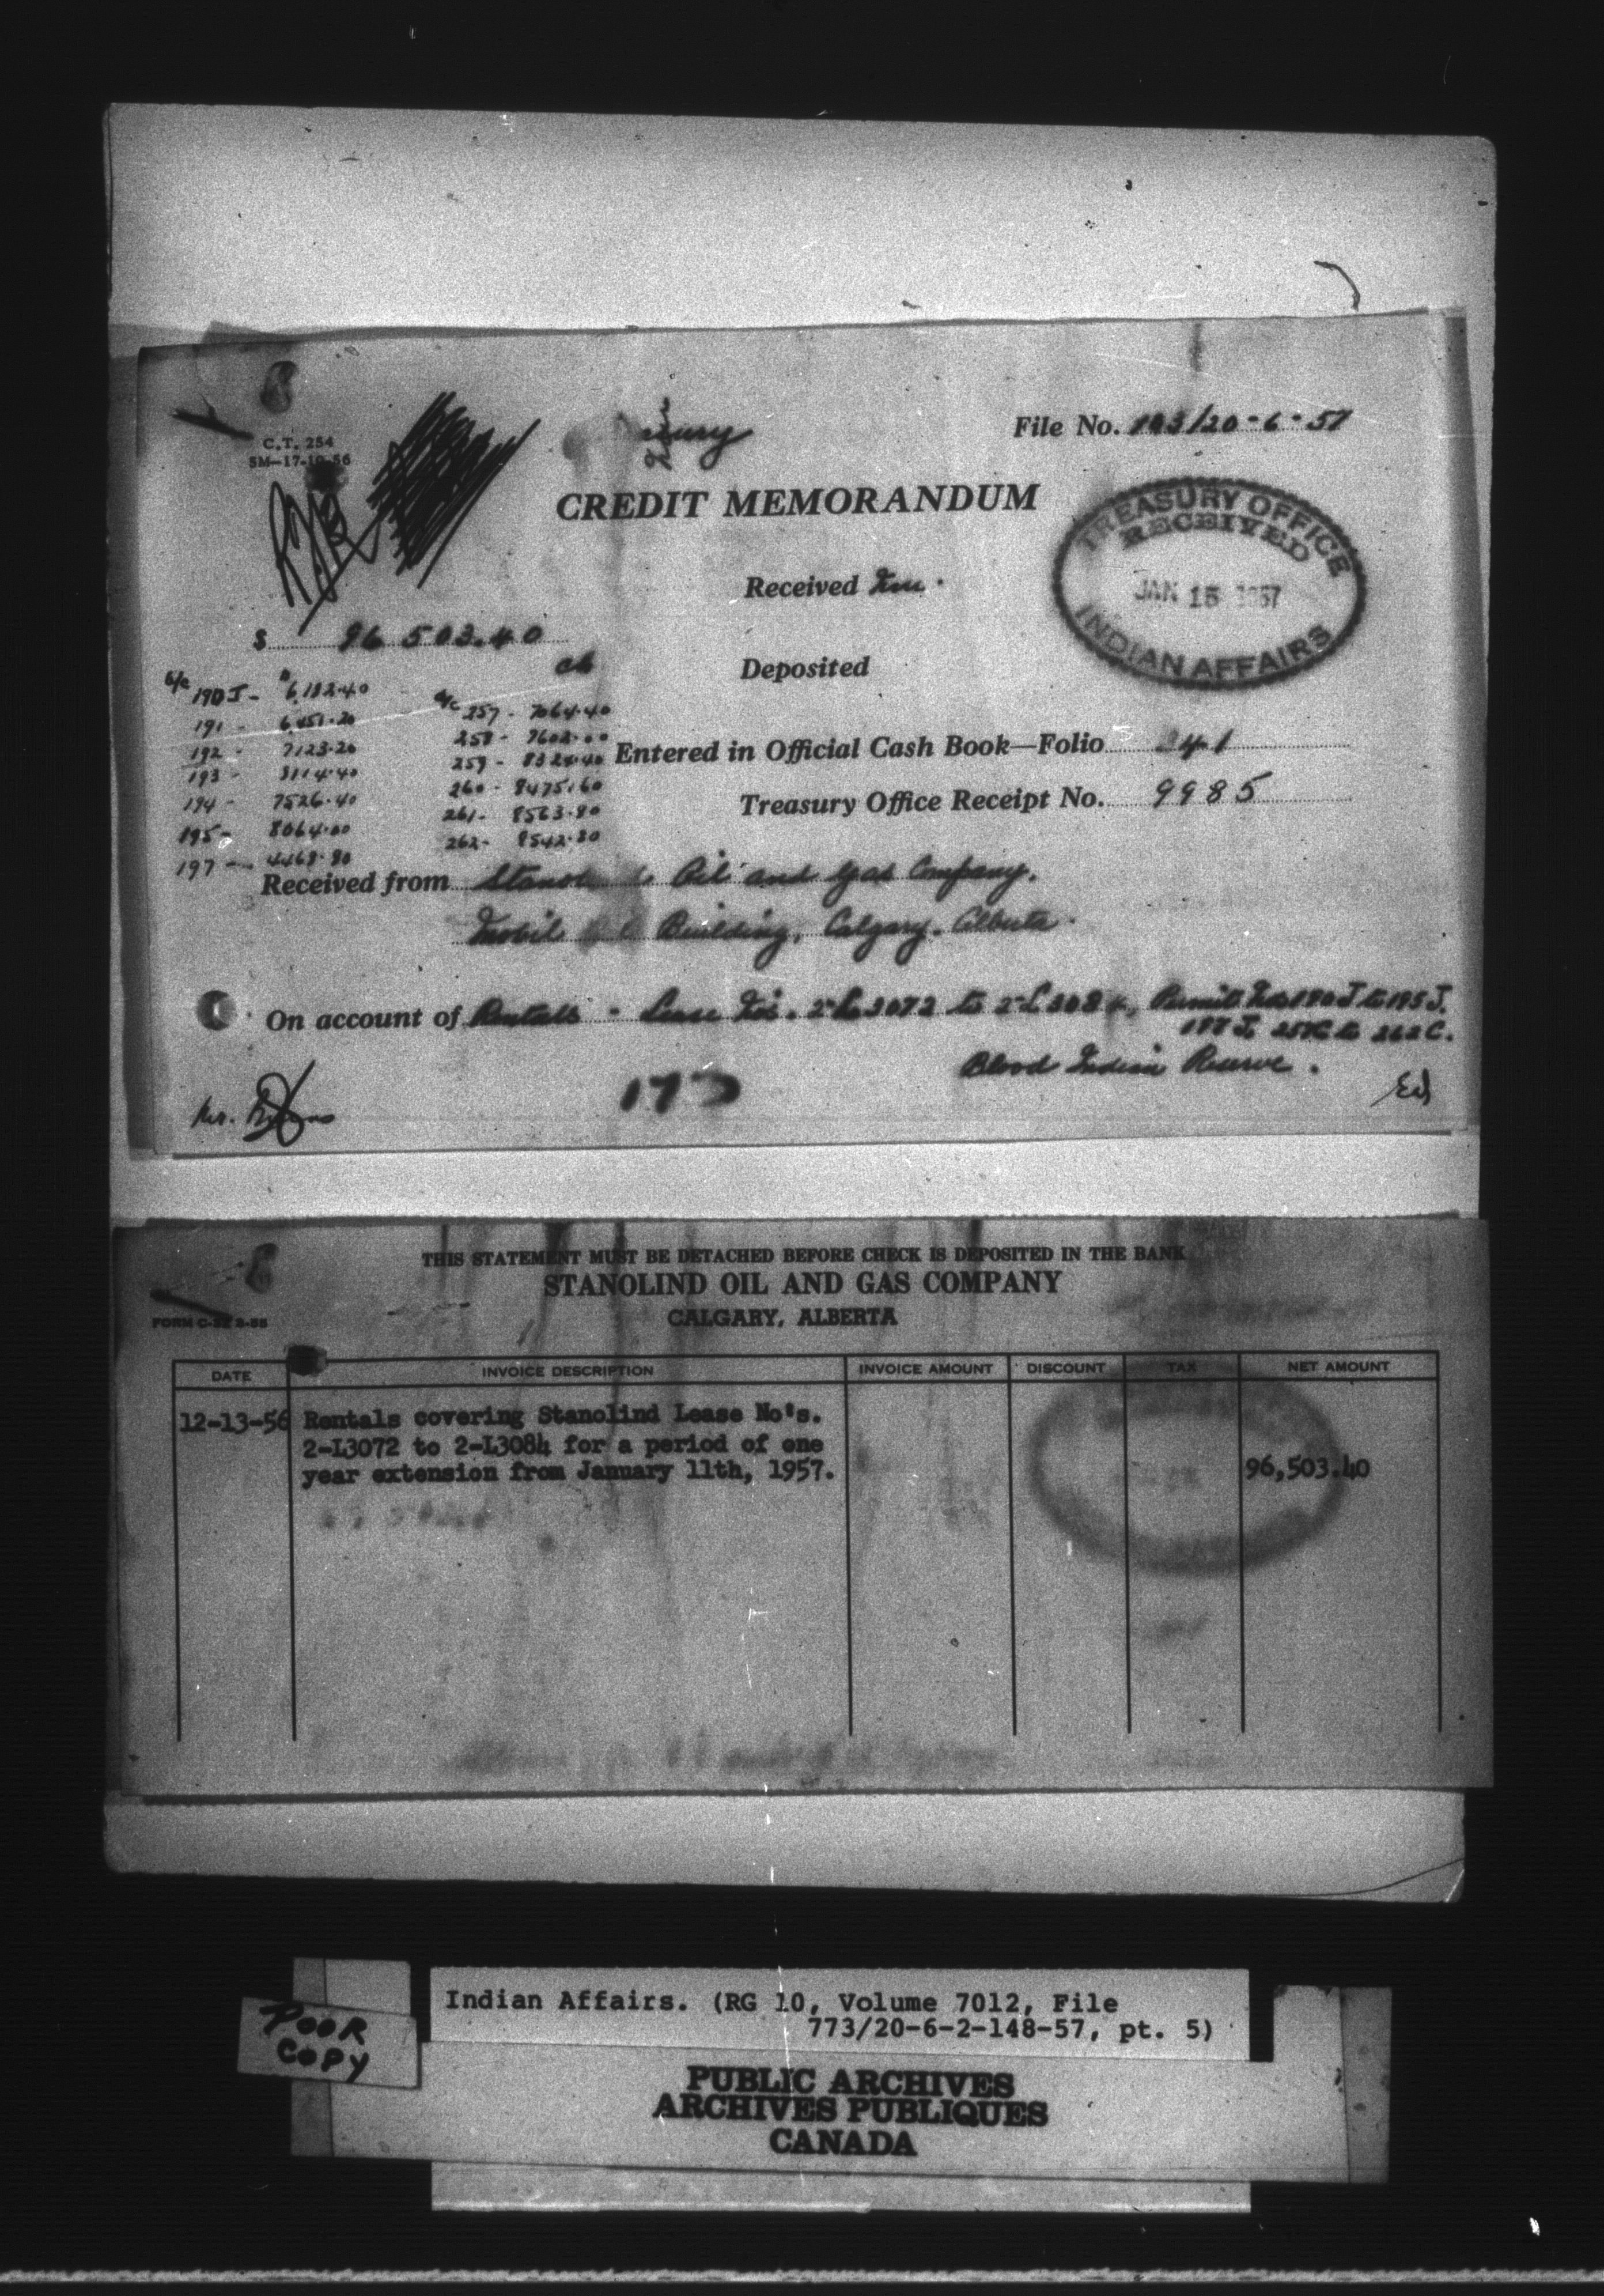 C.T. 254
5M-17-10-56
File No. 103/20-6-57
CREDIT MEMORANDUM
TREASURY OFFICE
RECEIVED
JAN 15 1957
INDIAN AFFAIRS
Received
$ 96 503.40
Deposited
190J - 6,182.40
191 - 6,451.20
192 - 7123.20
193 -
194 - 7526.40
195 - 8064.00
197 - 4468.80
257 - 7064.40
258 - 7602.00
259 - 8324.40
260 - 8475.60
261 - 8563.80
262 - 8542.80
Entered in Official Cash Book—Folio 41
Treasury Office Receipt No. 9985
Received from Stanolind Oil and Gas Company.
Mobil Oil Building, Calgary, Alberta.
On account of Rentals - Lease Nos. 2-L3072 to 2-L3084, Permit Nos 190J to 195J.
197J, 257C to 262C.
Blood Indian Reserve.
Mr.
THIS STATEMENT MUST BE DETACHED BEFORE CHECK IS DEPOSITED IN THE BANK
STANOLIND OIL AND GAS COMPANY
CALGARY, ALBERTA
DATE INVOICE DESCRIPTION INVOICE AMOUNT DISCOUNT TAX NET AMOUNT
12-13-56 Rentals covering Stanolind Lease No's.
2-L3072 to 2-L3084 for a period of one
year extension from January 11th, 1957. 96,503.40
Indian Affairs. (RG 10, Volume 7012, File
773/20-6-2-148-57, pt. 5)
POOR
COPY
PUBLIC ARCHIVES
ARCHIVES PUBLIQUES
CANADA